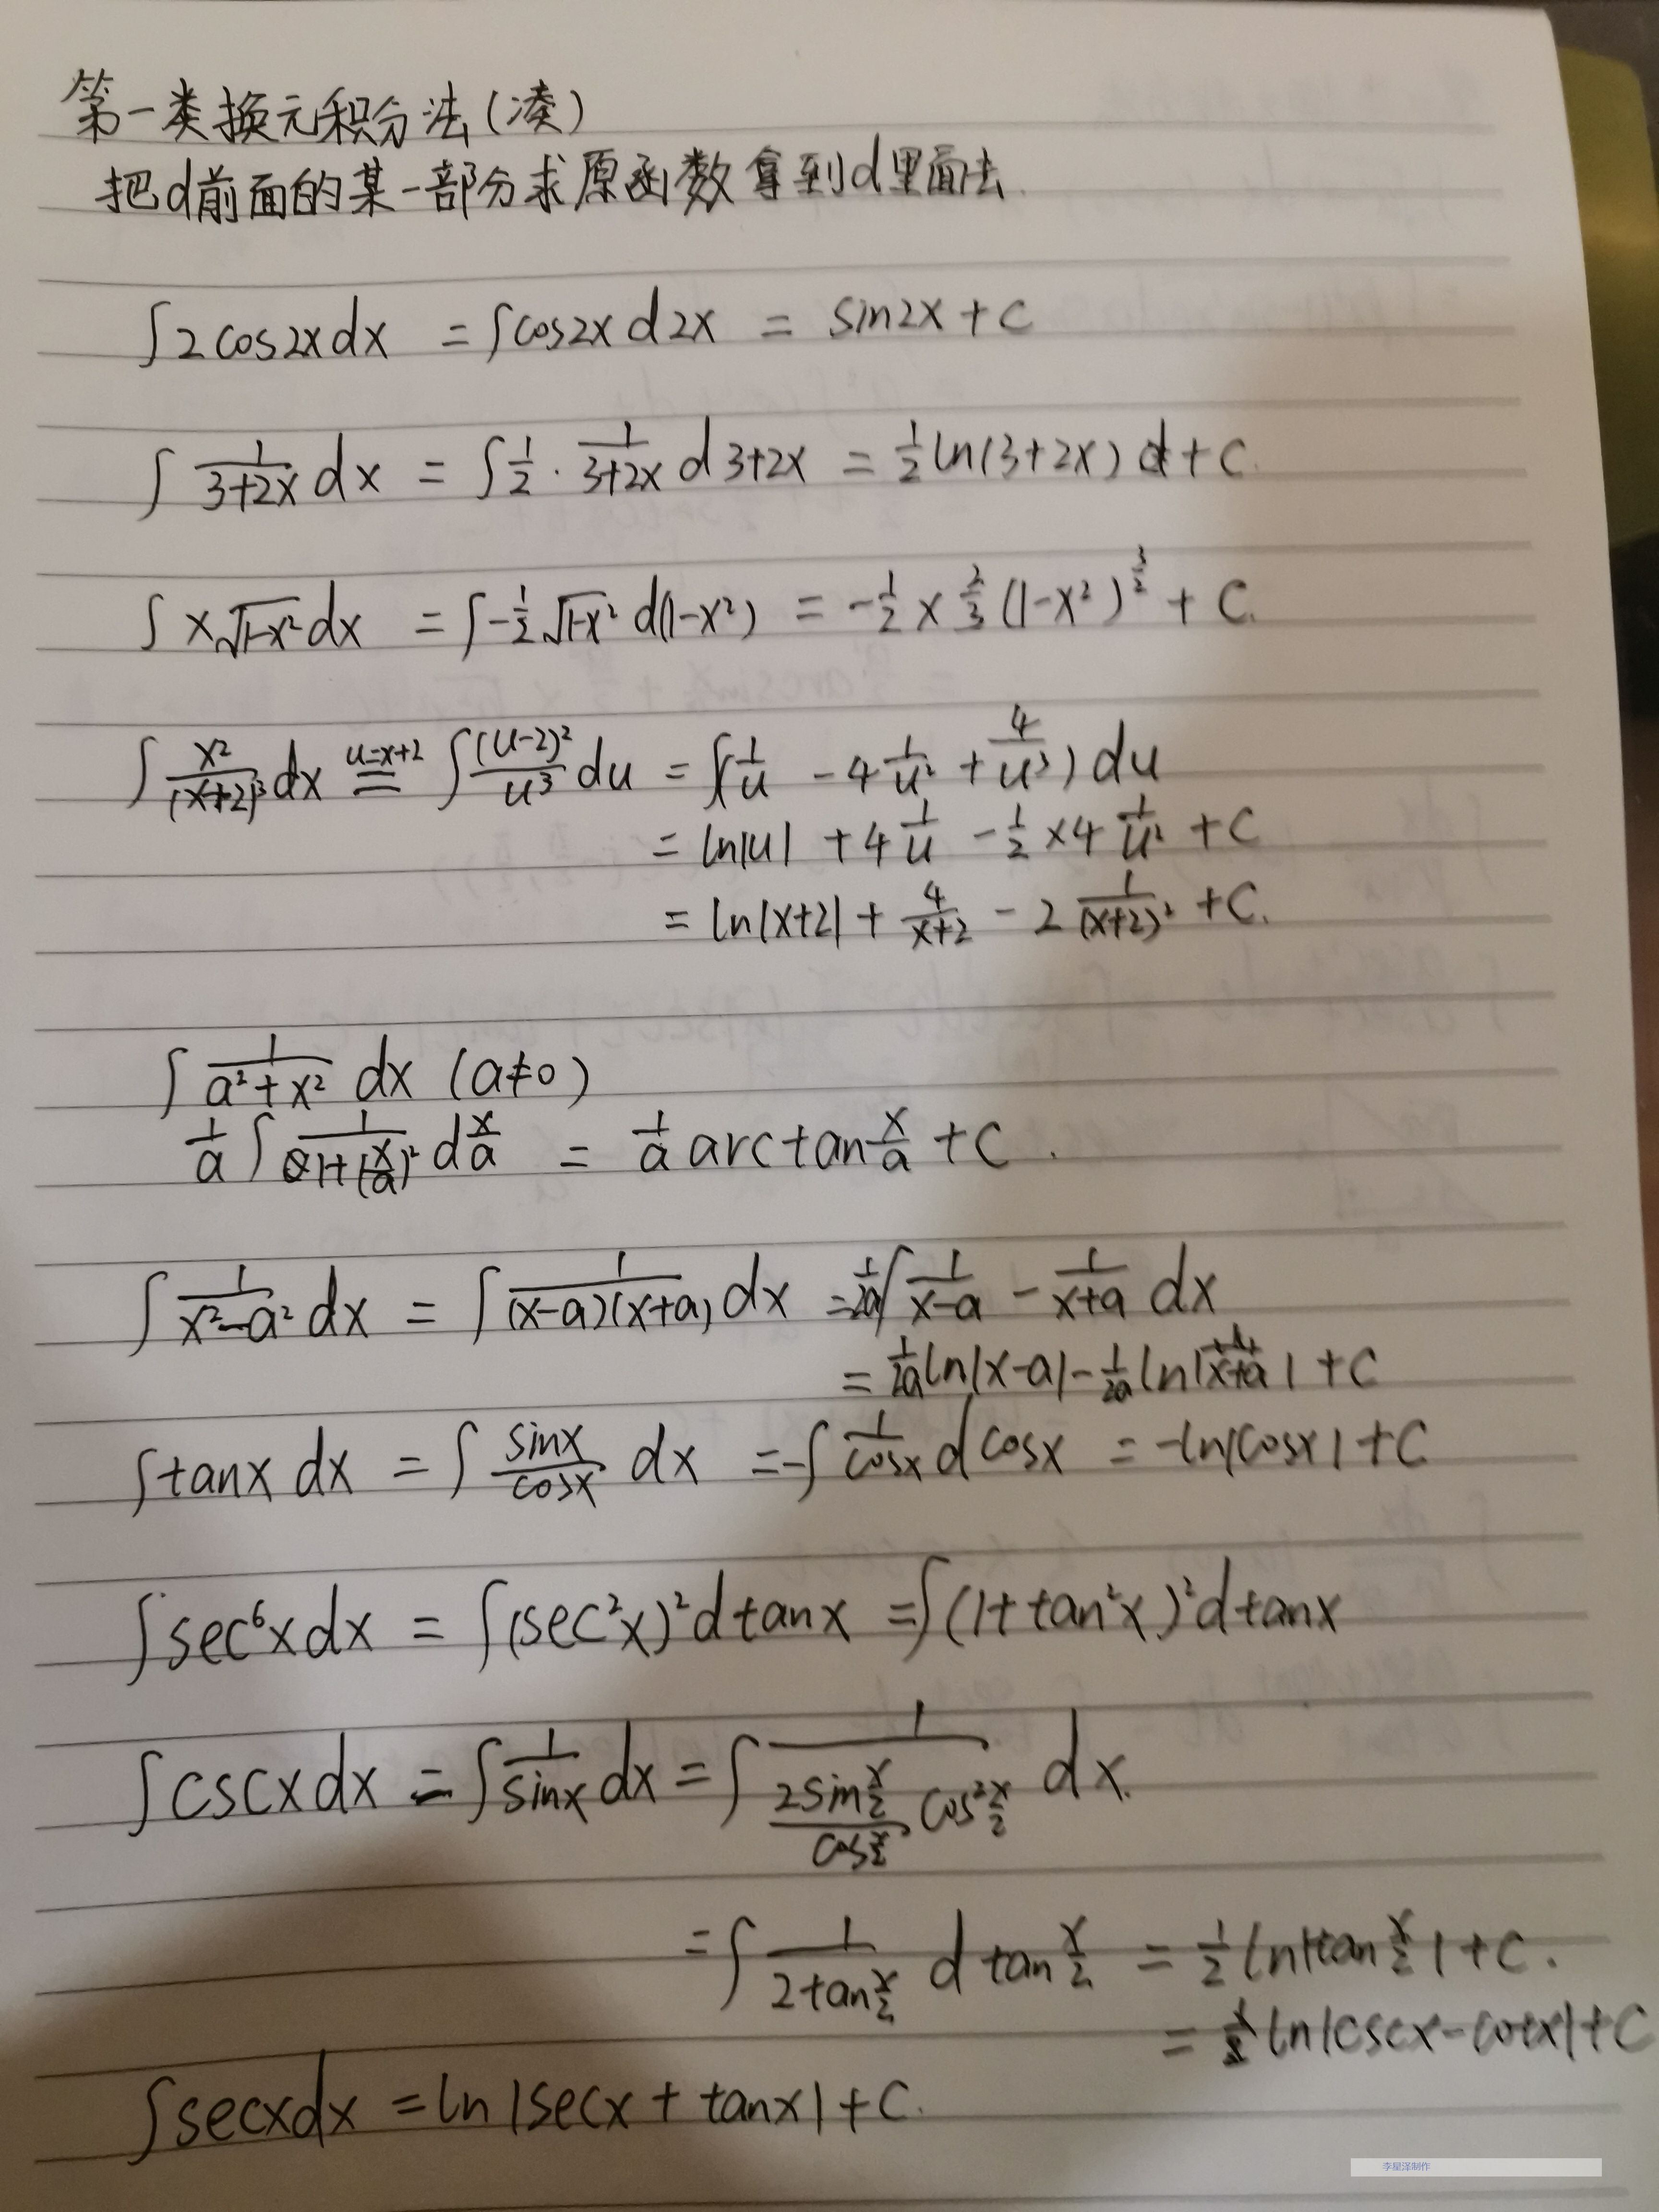 第一类换元积分法(凑)
把d前面的某一部分求原函数拿到d里面去.
∫2cos2xdx = ∫cos2x d2x = sin2x + C
∫ 1/(3+2x) dx = ∫ 1/2 · 1/(3+2x) d 3+2x = 1/2 ln(3+2x) + C.
∫x√(1-x²)dx = ∫-1/2 √(1-x²) d(1-x²) = -1/2 × 2/3 (1-x²)^(3/2) + C.
∫ x²/(x+2)³ dx =(u=x+2)= ∫ (u-2)²/u³ du = ∫(1/u - 4 1/u² + 4/u³) du
= ln|u| + 4 1/u - 1/2 × 4 1/u² + C
= ln|x+2| + 4/(x+2) - 2 1/(x+2)² + C.
∫ 1/(a²+x²) dx (a≠0)
1/a ∫ 1/(1+(x/a)²) d x/a = 1/a arctan x/a + C.
∫ 1/(x²-a²) dx = ∫ 1/((x-a)(x+a)) dx = 1/2a ∫ 1/(x-a) - 1/(x+a) dx
= 1/2a ln|x-a| - 1/2a ln|x+a| + C
∫tanx dx = ∫ sinx/cosx dx = -∫ 1/cosx d cosx = -ln|cosx| + C
∫sec⁶xdx = ∫(sec²x)²dtanx = ∫(1+tan²x)²dtanx
∫cscxdx = ∫ 1/sinx dx = ∫ 1/((2sin x/2)/(cos x/2) cos² x/2) dx.
= ∫ 1/(2tan x/2) d tan x/2 = 1/2 ln|tan x/2| + C.
= ln|cscx-cotx|+C
∫secxdx = ln|secx + tanx| + C.
李星泽制作